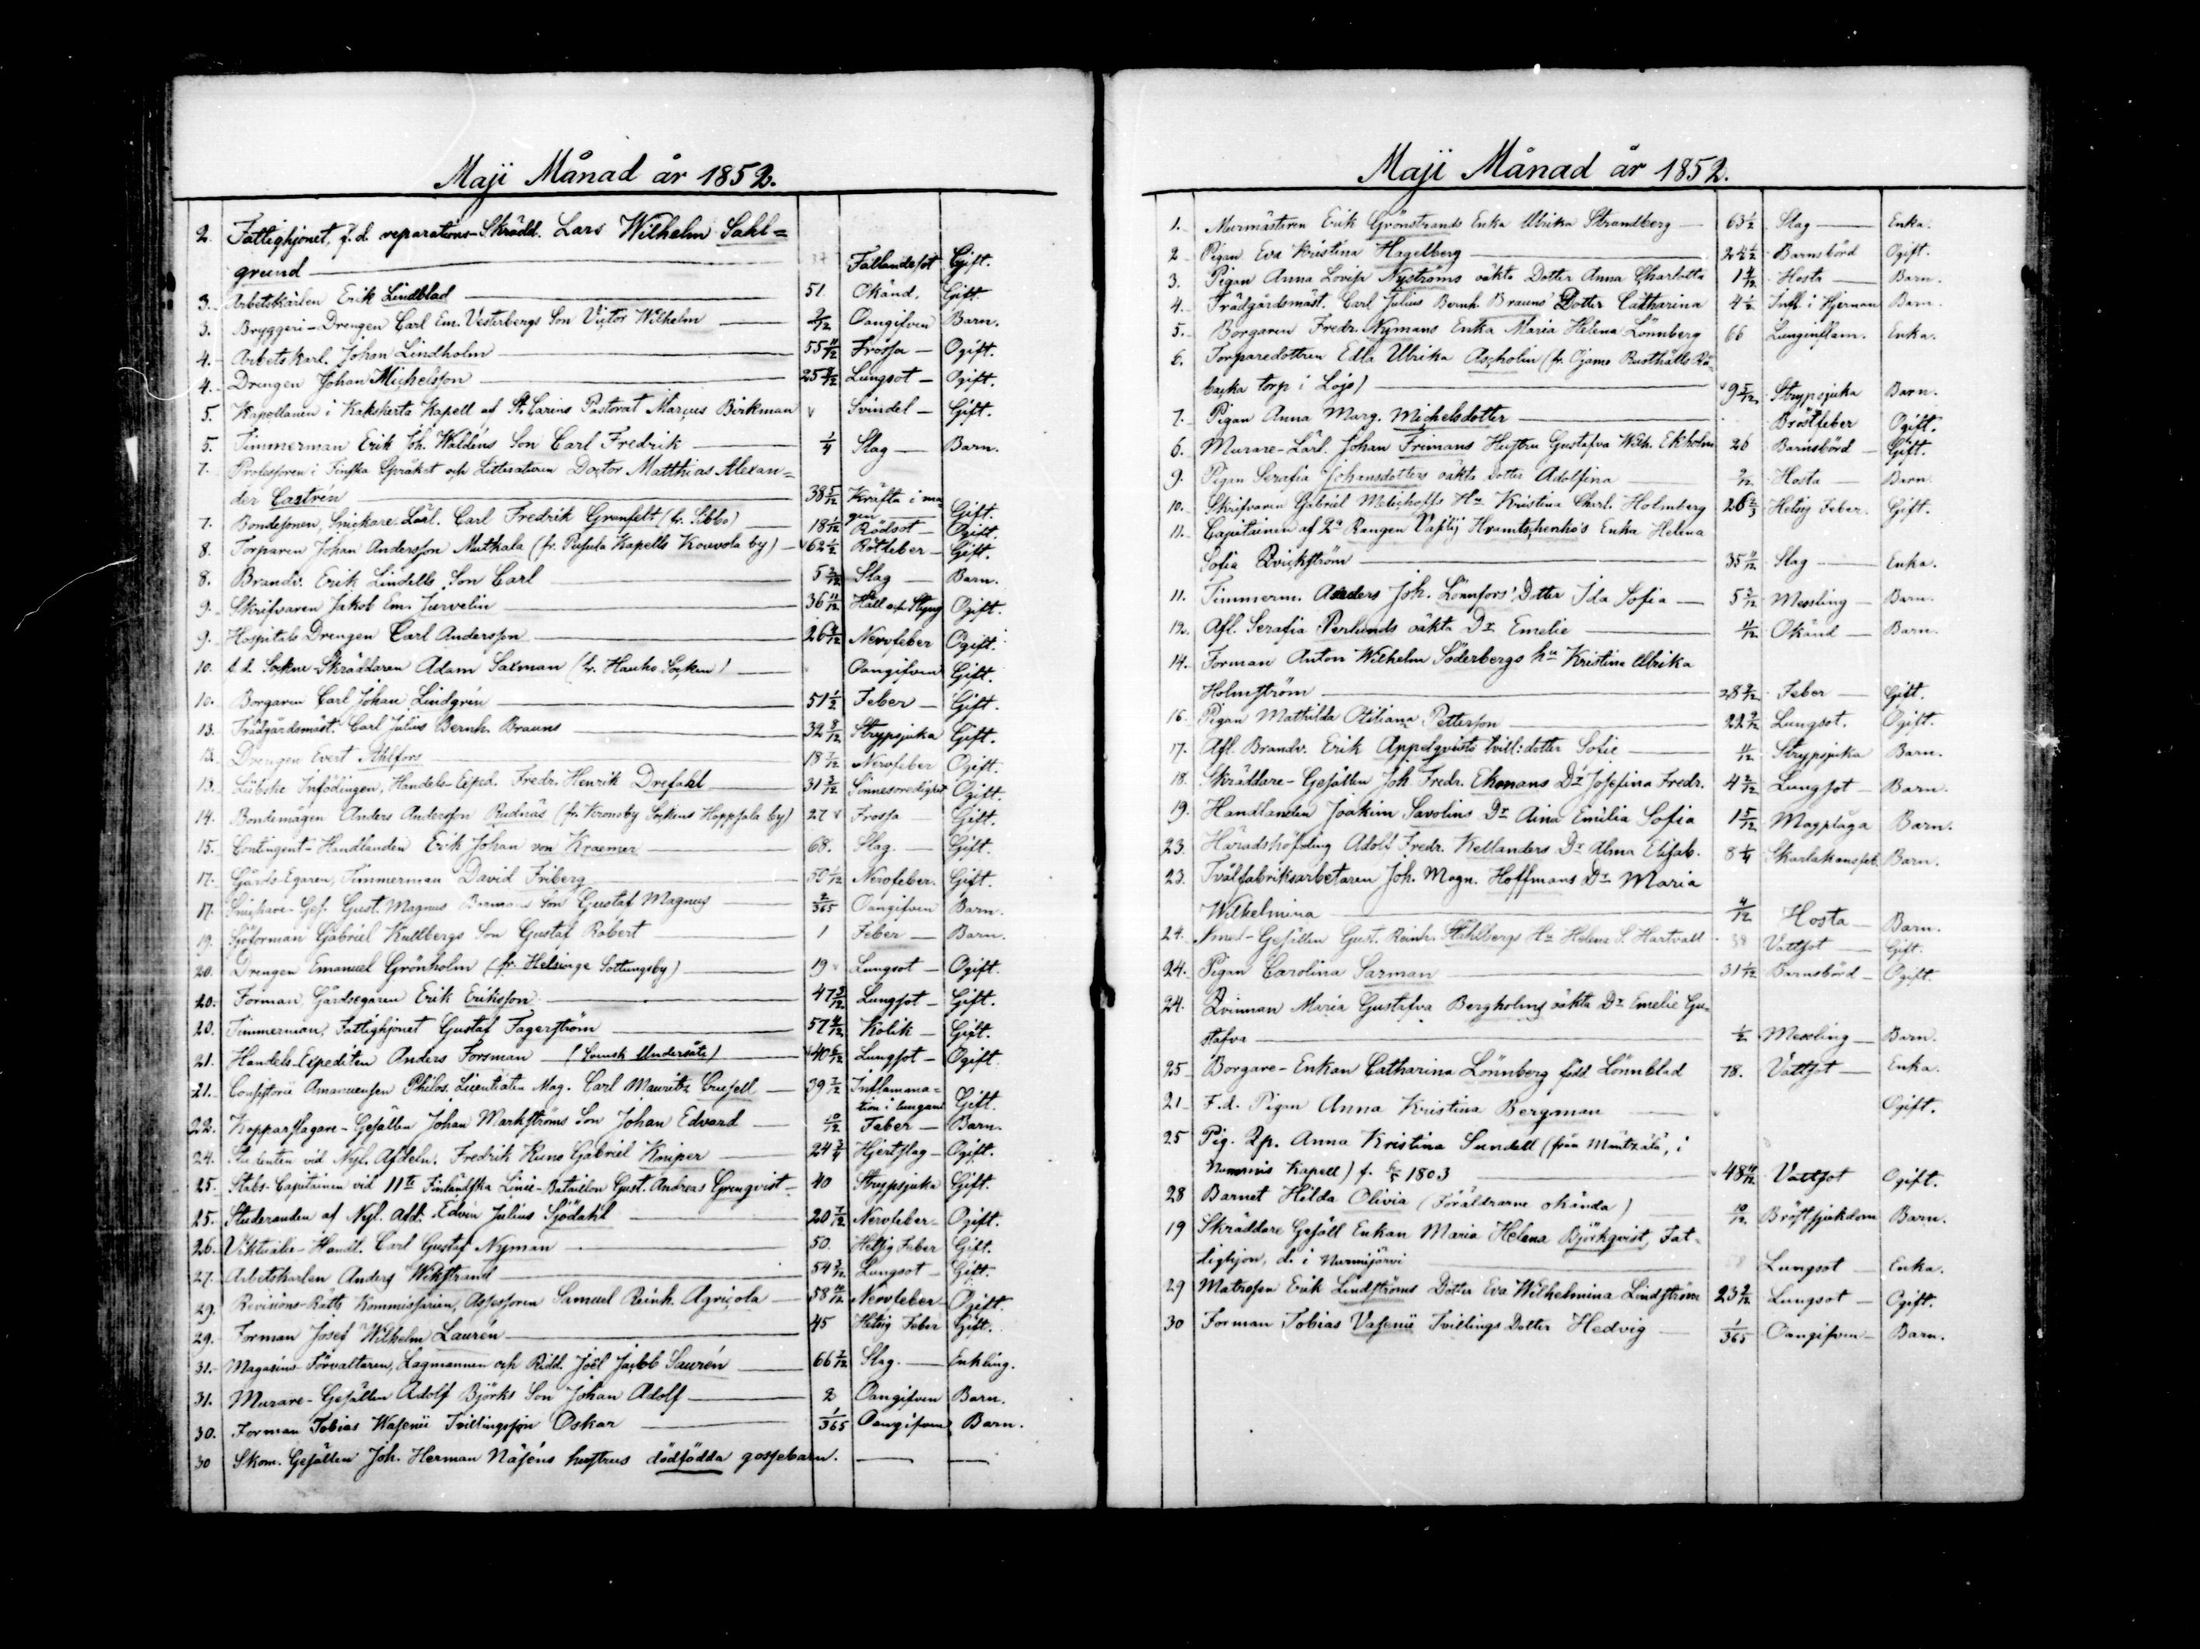 Maji Månad år 1852.
2. Fattighjonet, f. d. reparations-Skrädd. Lars Wilhelm Sahl=
grund 37 Fallandesot Gift.
3. Arbetskarlen Erik Lindblad 51 Okänd. Gift.
3. Bryggeri-Drengen Carl Em. Vesterbergs Son Victor Wilhelm 2/12 Oangifven Barn.
4. Arbetskarl. Johan Lindholm 55 11/12 Frossa Ogift.
4. Drengen Johan Michelsson 25 Lungsot Ogift.
5. Kapellanen i Kakskerta Kapell af St. Carins Pastorat Marcus Birkman v Svindel Gift.
5. Timmerman Erik Joh. Waldéns Son Carl Fredrik 1/4 Slag Barn.
7. Professoren i Finska Språket och Litteraturen Doctor Matthias Alexan=
der Castrén 38 5/12 Kräfta i ma
gen Gift.
7. Bondesonen, Snickare Lärl. Carl Fredrik Grenfelt (fr. Sibbo) 18 1/12 Rödsot Ogift.
8. Torparen Johan Andersson Muthala (fr. Pusula Kapells Kouvola by) v 62 1/2 Rötfeber Gift.
8. Brandv. Erik Lindells Son Carl 5 2/12 Slag Barn.
9. Skrifvaren Jakob Em. Jurvelin 36 11/12 Håll och Styng Ogift.
9. Hospitals Drengen Carl Andersson 26 Nervfeber Ogift.
10. f. d. Sockne Skräddaren Adam Saxman (fr. Hauho Socken) Oangifven Gift.
10. Borgaren Carl Johan Lindgrén 51 1/2 Feber Gift.
13. Trädgårdsmäst. Carl Julius Bernh. Brauns 32 8/12 Strypsjuka Gift.
13. Drengen Evert Ahlfors 18 Nervfeber Ogift.
13. Lübske Infödingen, Handels-Exped. Fredr. Henrik Drefahl 31 3/12 Sinnesoredighet Ogift.
14. Bondemågen Anders Andersson Rudnäs (fr. Kronoby Sockens Hoppsala by) 27 v Frossa Gift.
15. Contingent-Handlanden Erik Johan von Kraemer 68. Slag. Gift.
17. Gårds-Egaren, Timmerman David Friberg 50 1/12 Nervfeber. Gift.
17. Snickare-Ges. Gust. Magnus Son Gustaf Magnus 2/365 Oangifven Barn.
19. Sjöforman Gabriel Kullbergs Son Gustaf Robert 1 Feber Barn.
20. Drengen Emanuel Grönholm (fr. Helsinge Sottungsby) 19 v Lungsot Ogift.
20. Forman Gårdsegaren Erik Eriksson 47 3/12 Lungsot Gift.
20. Timmerman, Fattighjonet Gustaf Fagerström 57 Kolik Gift.
21. Handels-Expediten Anders Forsman (Svensk Undersåte) v 40 Lungsot Ogift.
21. Consistorie Amanuensen Philos. Licentiaten Mag. Carl Mauritz Crusell 39 Inflamma=
tion i lungan Gift.
22. Kopparslagare-Gesällen Johan Markströms Son Johan Edvard 10/12 Feber Barn.
24. Studenten vid Nyl. Afdeln. Fredrik Kuno Gabriel Kniper 24 3/4 Hjertslag Ogift.
25. Stabs-Capitainen vid 11te Finländska Linie-Bataillon Gust. Andreas Grenqvist 40 Strypsjuka Gift.
25. Studeranden af Nyl. Afd. Edvin Julius Sjödahl 20 Nervfeber Ogift.
26. Viktualie-Handl. Carl Gustaf Nyman 50. Hetsig Feber Gift.
27. Arbetskarlen Anders Wikstrand 54 3/12 Lungsot Gift.
29. Revisions-Rätts Kommissarien, Assessoren Samuel Reinh. Agricola 58 10/12 Nervfeber Ogift.
29. Forman Josef Wilhelm Laurén 45 Hetsig Feber Gift.
31. Magasins-Förvaltaren, Lagmannen och Ridd. Joël Jacob Saurén 66 Slag. Enkling.
31. Murare-Gesällen Adolf Björks Son Johan Adolf 2 Oangifven Barn.
30. Forman Tobias Wasenii Tvillingsson Oskar 1/365 Oangifven Barn.
30 Skom. Gesällen Joh. Herman Näséns hustrus dödfödda gossebarn.
Maji Månad år 1852.
1. Murmästren Erik Grönstrands Enka Ulrika Strandberg 63 1/2 Slag Enka.
2 Pigan Eva Kristina Hagelberg 24 1/2 Barnsbörd Ogift.
3. Pigan Anna Lovisa Nyströms oäkta Dotter Anna Charlotta 1 Hosta Barn.
4. Trädgårdsmäst. Carl Julius Bernh. Brauns' Dotter Catharina 4 1/2 Infl. i Hjernan Barn.
5. Borgaren Fredr. Nymans Enka Maria Helena Lönnberg 66 Lunginflam. Enka.
6. Torparedottren Edla Ulrika Ascholin (fr. Ojamo Rusthålls
backa torp i Lojo) v 9 5/12 Strypsjuka Barn.
7. Pigan Anna Marg. Michelsdotter Bröstfeber Ogift.
6. Murare-Lärl. Johan Frimans Hustru Gustafva Wilh. Ekholm 26 Barnsbörd Gift.
9. Pigan Serafia Johansdotters oäkta Dotter Adolfina 2/12 Hosta Barn.
10. Skrifvaren Gabriel Melichoffs Hu Kristina Charl. Holmberg 26 2/3 Hetsig Feber. Gift.
11. Capitainen af 2a Rangen Vasilij Hramtschenko's Enka Helena
Sofia Qvickström 35 11/12 Slag Enka.
11. Timmerm. Anders Joh. Lönnfors' Dotter Ida Sofia 5 3/12 Messling Barn.
12. Afl. Serafia Perlunds oäkta Dr Emelie 11/12 Okänd Barn.
14. Forman Anton Wilhelm Söderbergs hu Kristina Ulrika
Holmström 28 Feber Gift.
16. Pigan Mathilda Otiliana Petterson 22 Lungsot. Ogift.
17. Afl. Brandv. Erik Appelqvists tvill: dotter Sofie 11/12 Strypsjuka Barn.
18. Skräddare-Gesällen Joh. Fredr. Ekmans Dr Josefina Fredr. 4 2/12 Lungsot Barn.
19. Handlanden Joakim Savolins Dr Aina Emilia Sofia 1 5/12 Magplåga Barn.
23. Häradshöfding Adolf Fredr. Kellanders Dr Alma Elisab. 8 1/4 Skarlakansfeb. Barn.
23. Tvålfabriksarbetaren Joh. Magn. Hoffmans Dr Maria
Wilhelmina 4/12 Hosta Barn.
24. Smed-Gesällen Gust. Reinh. Stahlbergs Hu Helena S. Hartvall 38 Vattsot Gift.
24. Pigan Carolina Saxman 31 1/12 Barnsbörd Ogift.
24. Qvinnan Maria Gustafva Bergholms oäkta Dr Emelie Gu=
stafva 1/2 Messling Barn.
25 Borgare-Enkan Catharina Lönnberg född Lönnblad 78. Vattsot Enka.
21 F. d. Pigan Anna Kristina Bergman Ogift.
25 Pig. Anna Kristina Sundell (från Mäntzälä, i
Nummis Kapell) f. 1803 v 48 11/12 Vattsot Ogift.
28 Barnet Hilda Olivia (Föräldrarne okända) 10/12 Bröstsjukdom Barn.
19 Skräddare Gesäll Enkan Maria Helena Björkqvist, Fat=
tighjon, d. i Nurmijärvi Lungsot Enka.
29 Matrosen Erik Lindströms Dotter Eva Wilhelmina Lindström 23 2/12 Lungsot Ogift.
30 Forman Tobias Vasenii Tvillings Dotter Hedvig 1/365 Oangifven Barn.